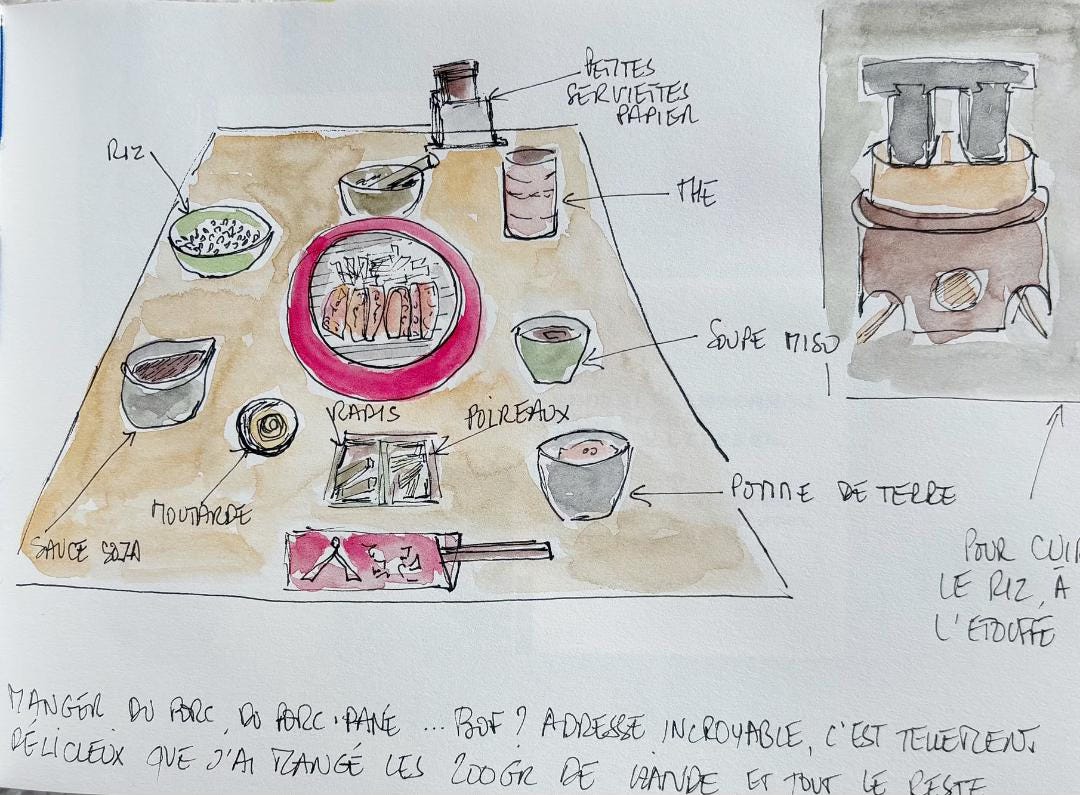 PETITES
SERVIETTES
PAPIER
RIZ
THE
SOUPE MISO
RADIS
POIREAUX
MOUTARDE
POMME DE TERRE
SAUCE SOJA
POUR CUI
LE RIZ, À
L'ETOUFFÉ
MANGER DU PORC, DU PORC PANÉ ... BOF ? ADRESSE INCROYABLE, C'EST TELLEMENT
DÉLICIEUX QUE J'AI MANGÉ LES 200GR DE VIANDE ET TOUT LE RESTE